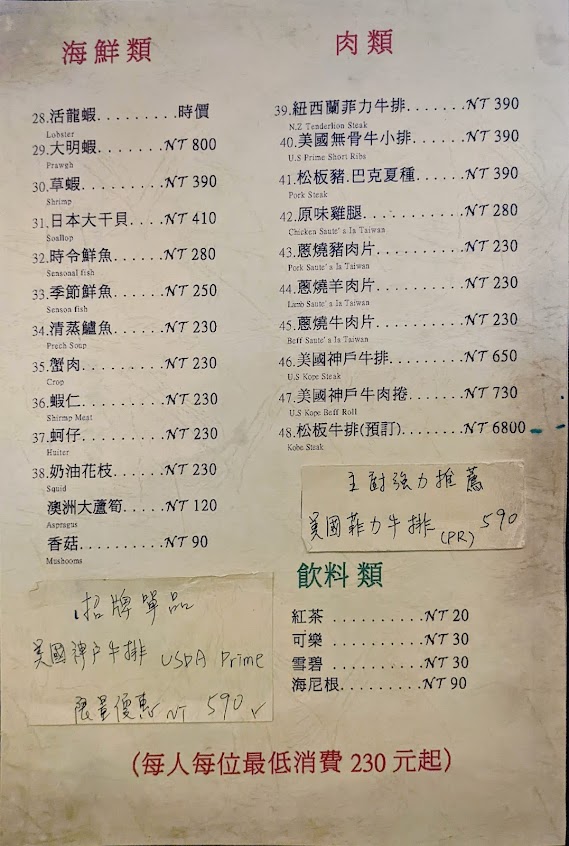 海鮮類
28.活龍蝦.........時價
Lobster
29.大明蝦.......NT 800
Prawgh
30.草蝦.........NT 390
Shrimp
31.日本大干貝....NT 410
Soallop
32.時令鮮魚......NT 280
Sensonal fish
33.季節鮮魚......NT 250
Season fish
34.清蒸鱸魚......NT 230
Prech Soup
35.蟹肉.........NT 230
Crop
36.蝦仁.........NT 230
Shirmp Meat
37.蚵仔.........NT 230
Huiter
38.奶油花枝......NT 230
Squid
澳洲大蘆筍.....NT 120
Aspragus
香菇..........NT 90
Mushooms
招牌單品
美國神戶牛排 USDA Prime
限量優惠 NT 590
肉類
39.紐西蘭菲力牛排.......NT 390
N.Z Tenderlion Steak
40.美國無骨牛小排......NT 390
U.S Prime Short Ribs
41.松板豬.巴克夏種.....NT 390
Pork Steak
42.原味雞腿...........NT 280
Chicken Saute' a Ia Taiwan
43.蔥燒豬肉片.........NT 230
Pork Saute' a Ia Taiwan
44.蔥燒羊肉片.........NT 230
Lamb Saute' a Ia Taiwan
45.蔥燒牛肉片.........NT 230
Beff Saute' a Ia Taiwan
46.美國神戶牛排........NT 650
U.S Kope Steak
47.美國神戶牛肉捲......NT 730
U.S Kope Beff Roll
48.松板牛排(預訂).......NT 6800
Kobe Steak
主廚強力推薦
美國菲力牛排(PR) 590
飲料類
紅茶 ..........NT 20
可樂 ..........NT 30
雪碧 ..........NT 30
海尼根.........NT 90
(每人每位最低消費 230 元起)